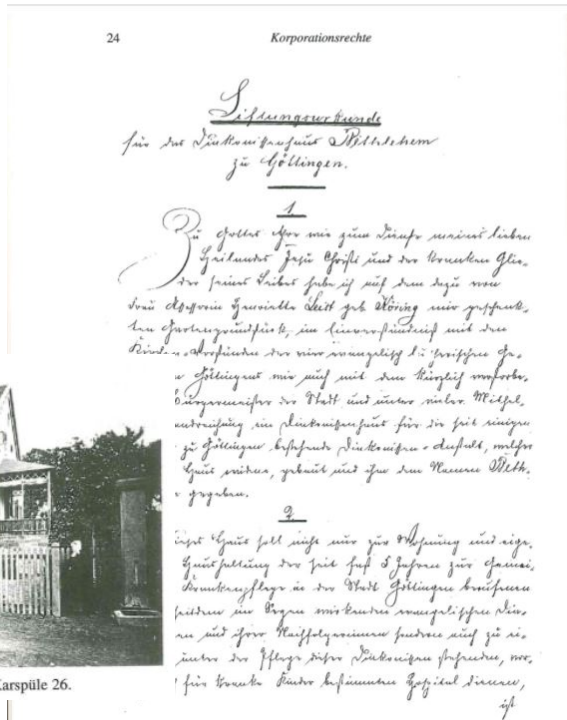 24
Korporationsrechte
Stiftungsurkunde
für das Diakonissenhaus Bethlehem
zu Göttingen.
1.
Zu Gottes Ehre wie zum Dienste meines lieben
Heilandes Jesu Christi und der kranken Glie-
der seines Leibes habe ich auf dem dazu von
Frau Henriette Leist geb Köring mir geschenk-
ten Gartengrundstück, im Einverständniß mit den
Kirchen-Vorständen der vier evangelisch lutherischen Ge-
Göttingens wie auch mit dem kürzlich verstorbe-
Bürgermeister der Stadt und unter vieler Mithel-
Handreichung ein Diakonissenhaus für die seit einigen
zu Göttingen bestehende Diakonissen-Anstalt, welcher
Haus widme, gebaut und ihm den Namen Beth-
gegeben.
2.
Haus soll nicht nur zur Wohnung und eige-
Haushaltung der seit fast 5 Jahren zur Gemei-
Krankenpflege in der Stadt Göttingen berufenen
seitdem im Segen wirkenden evangelischen Dia-
en und ihrer Nachfolgerinnen sondern auch zu ei-
unter der Pflege dieser Diakonissen stehenden, vor-
für kranke Kinder bestimmten Hospital dienen,
ist
Karspüle 26.